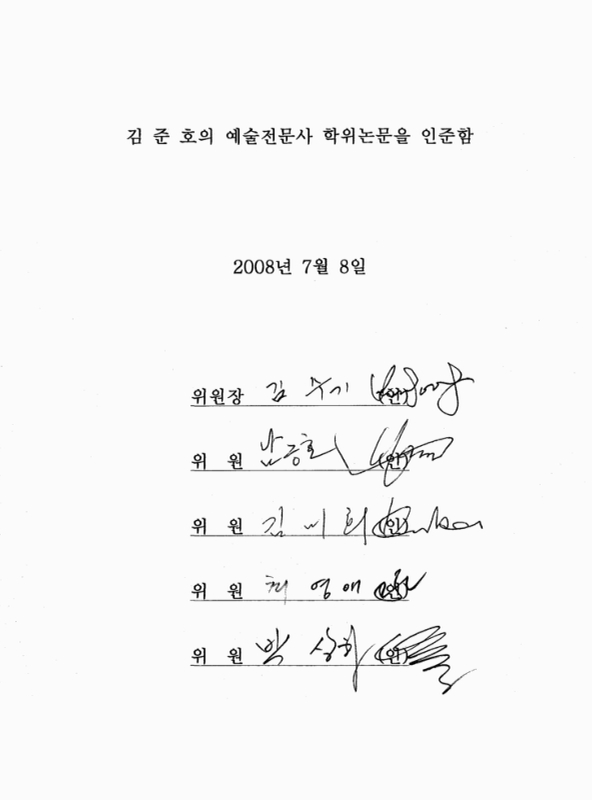 김 준 호의 예술전문사 학위논문을 인준함
2008년 7월 8일
위원장 김 수기 (인)
위 원 남긍호 (인)
위 원 김 미 희 (인)
위 원 최 영 애 (인)
위 원 박 상하 (인)